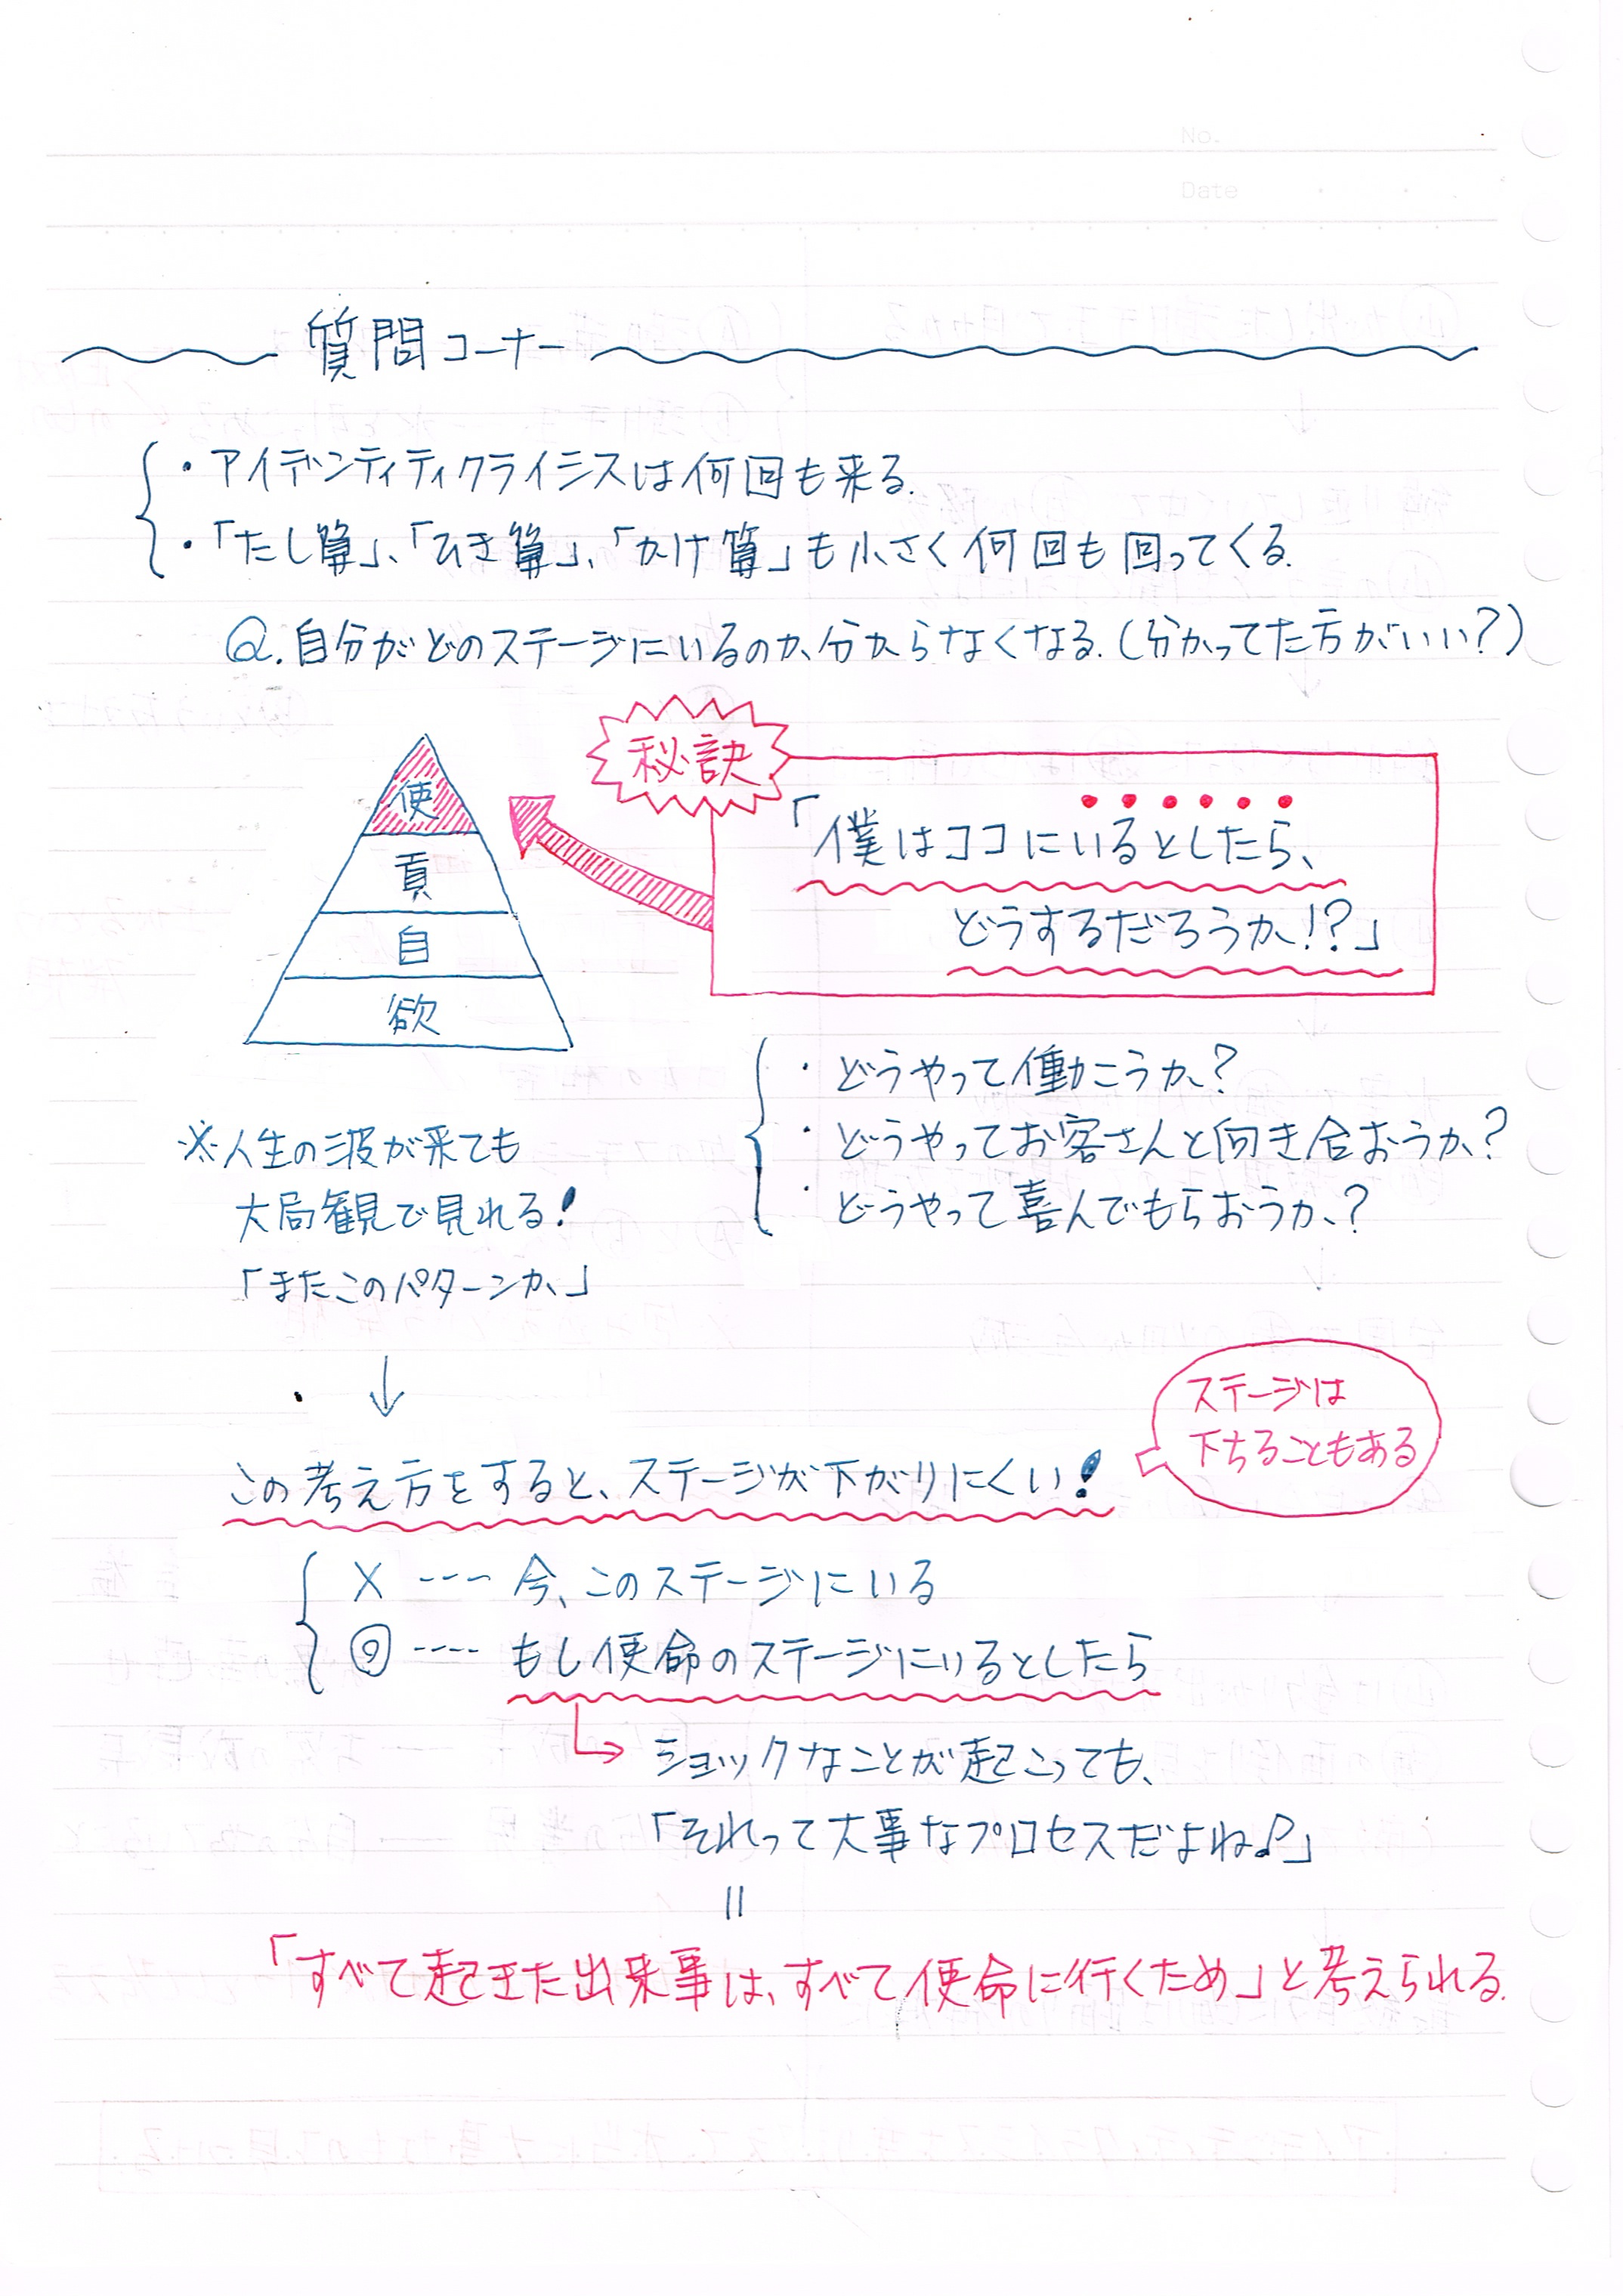 No.
Date
質問コーナー
・アイデンティティクライシスは何回も来る.
・「たし算」、「ひき算」、「かけ算」も小さく何回も回ってくる.
Q. 自分がどのステージにいるのか分からなくなる.(分かってた方がいい?)
秘訣
「僕はココにいるとしたら、
どうするだろうか!?」
使
貢
自
欲
・どうやって働こうか?
・どうやってお客さんと向き合おうか?
・どうやって喜んでもらおうか?
※人生の波が来ても
大局観で見れる!
「またこのパターンか」
↓
ステージは
下ちることもある
この考え方をすると、ステージが下がりにくい!
× ---- 今、このステージにいる
◎ ---- もし使命のステージにいるとしたら
ショックなことが起こっても、
「それって大事なプロセスだよね♪」
=
「すべて起きた出来事は、すべて使命に行くため」と考えられる.